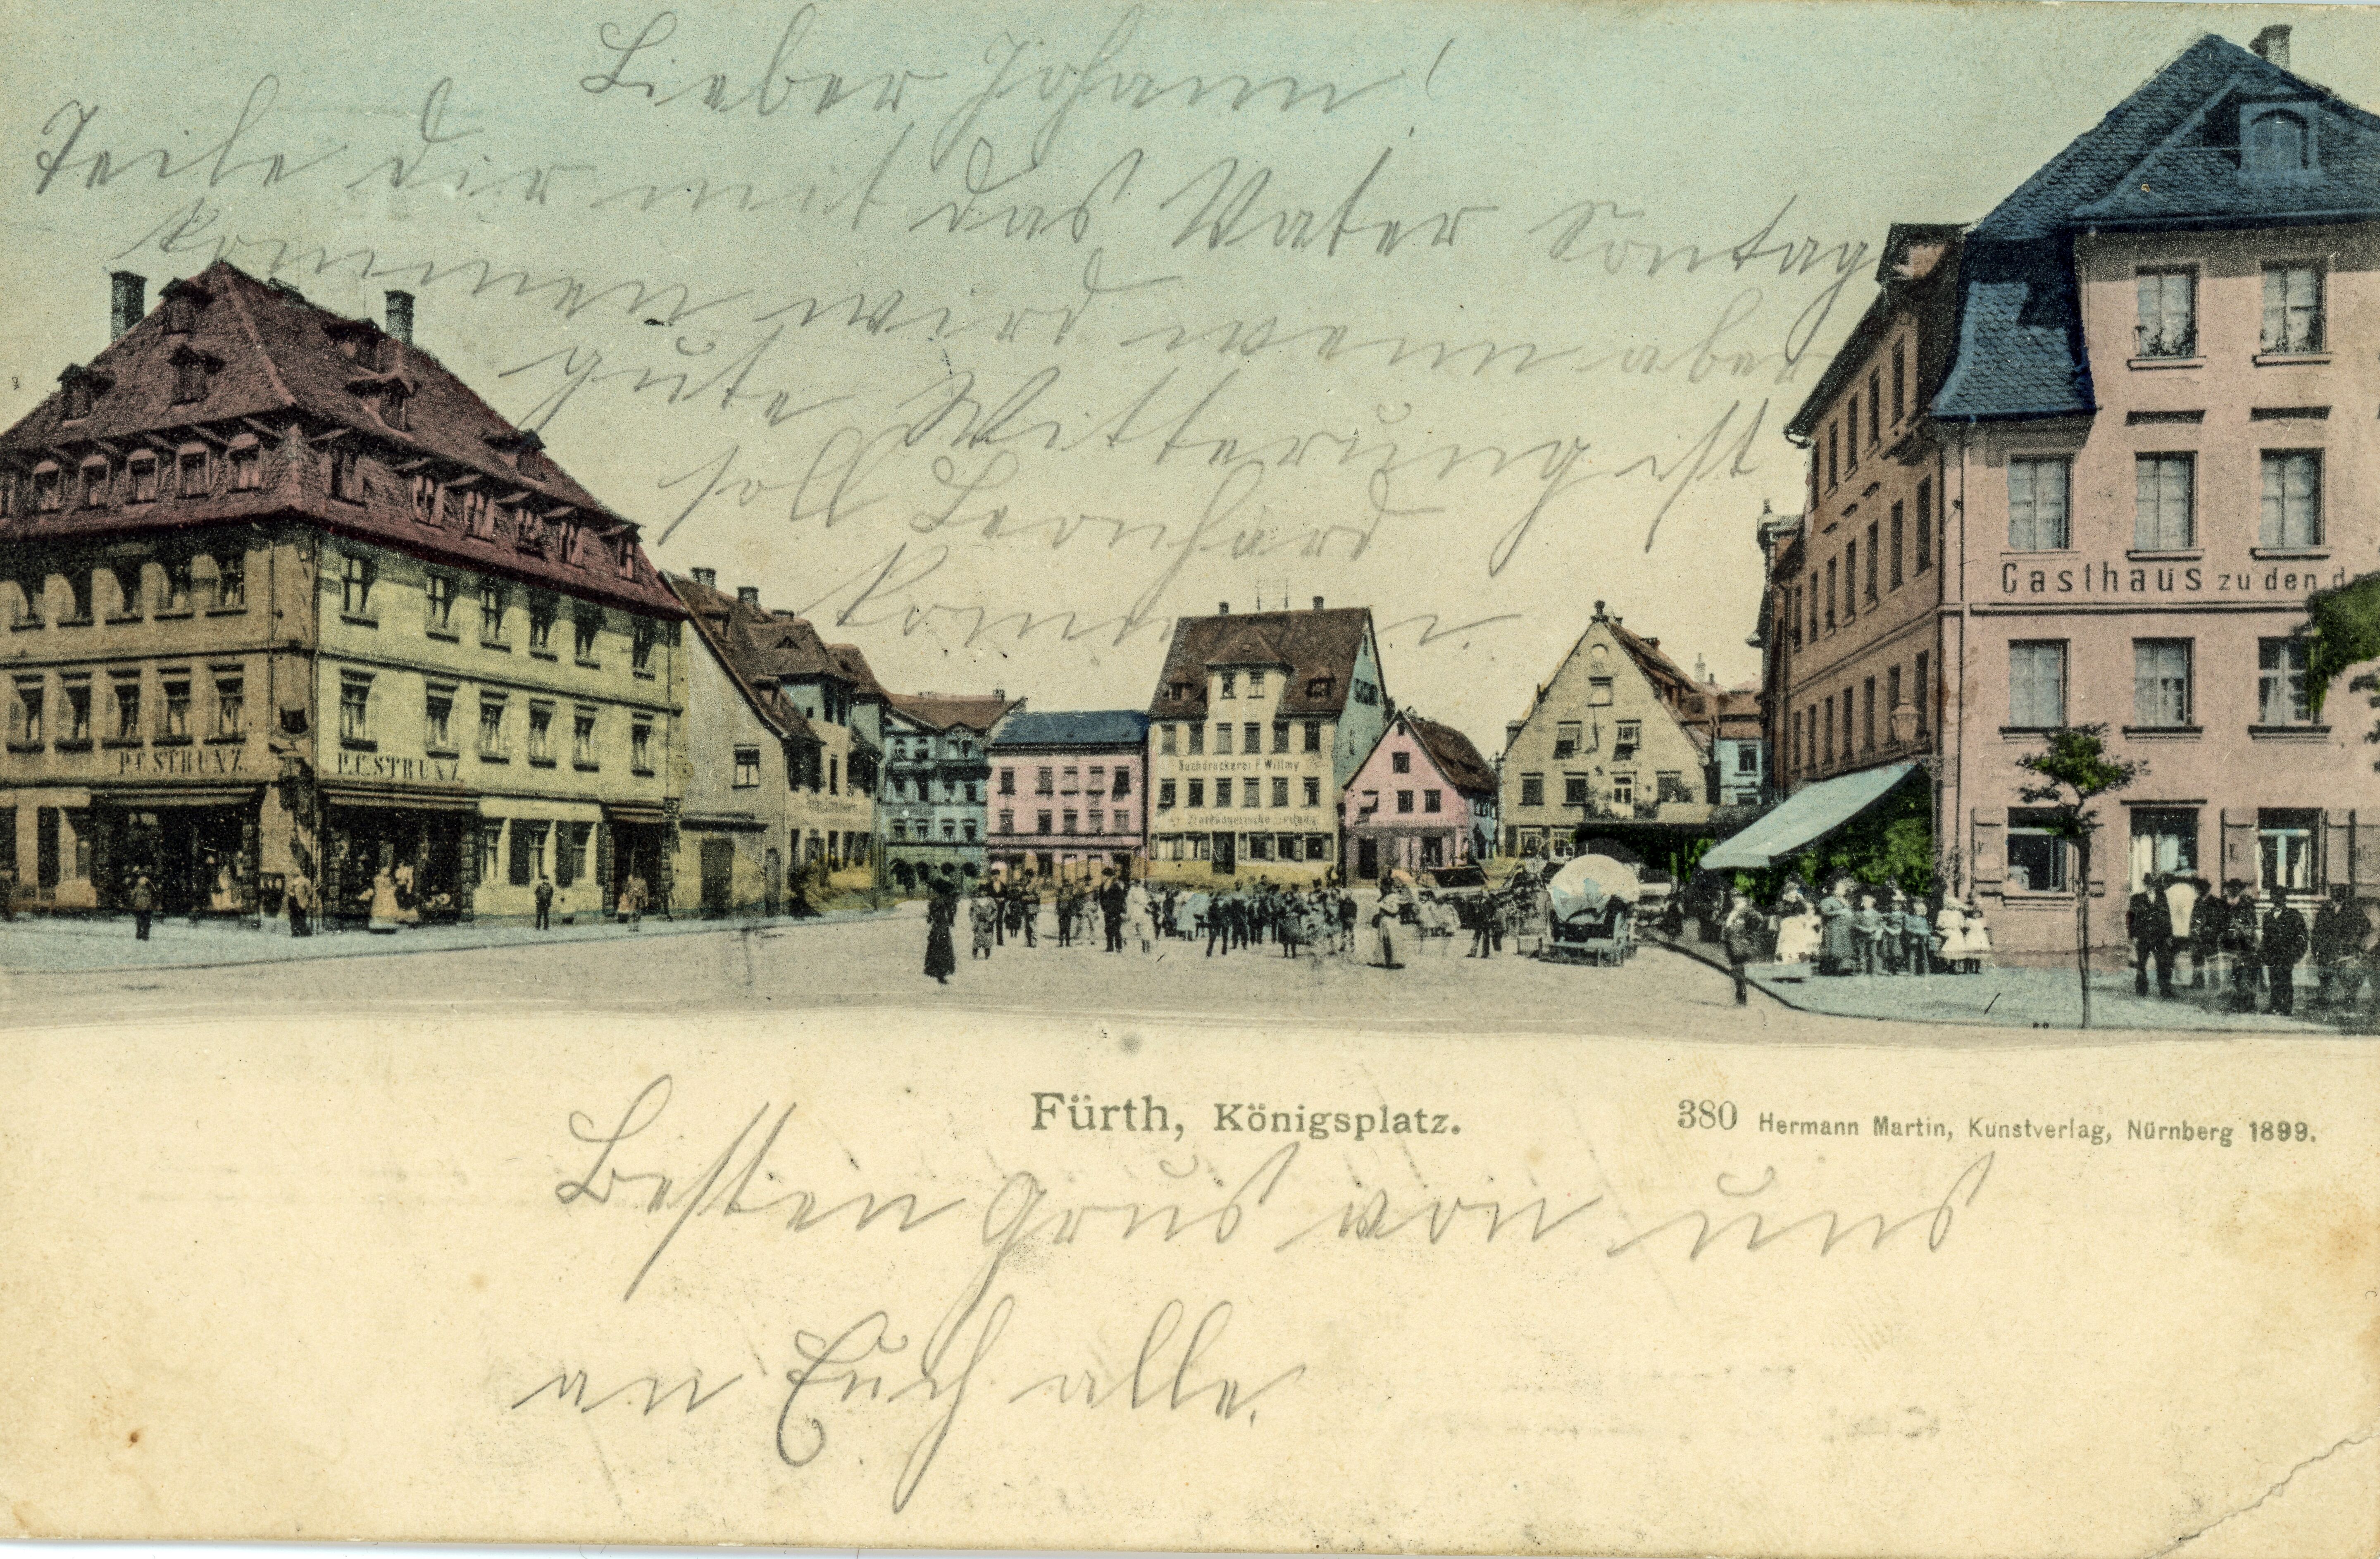 Lieber Johann!
Teile dir mit das Vater Sontag
kommen wird wenn aber
gute Witterung ist
soll Leonhard
kommen.
Gasthaus zu den
P.C. STRUNZ.
P.C. STRUNZ
Buchdruckerei F. Willmy
Fürth, Königsplatz.
380 Hermann Martin, Kunstverlag, Nürnberg 1899.
Besten Grus von uns
an Euch alle.